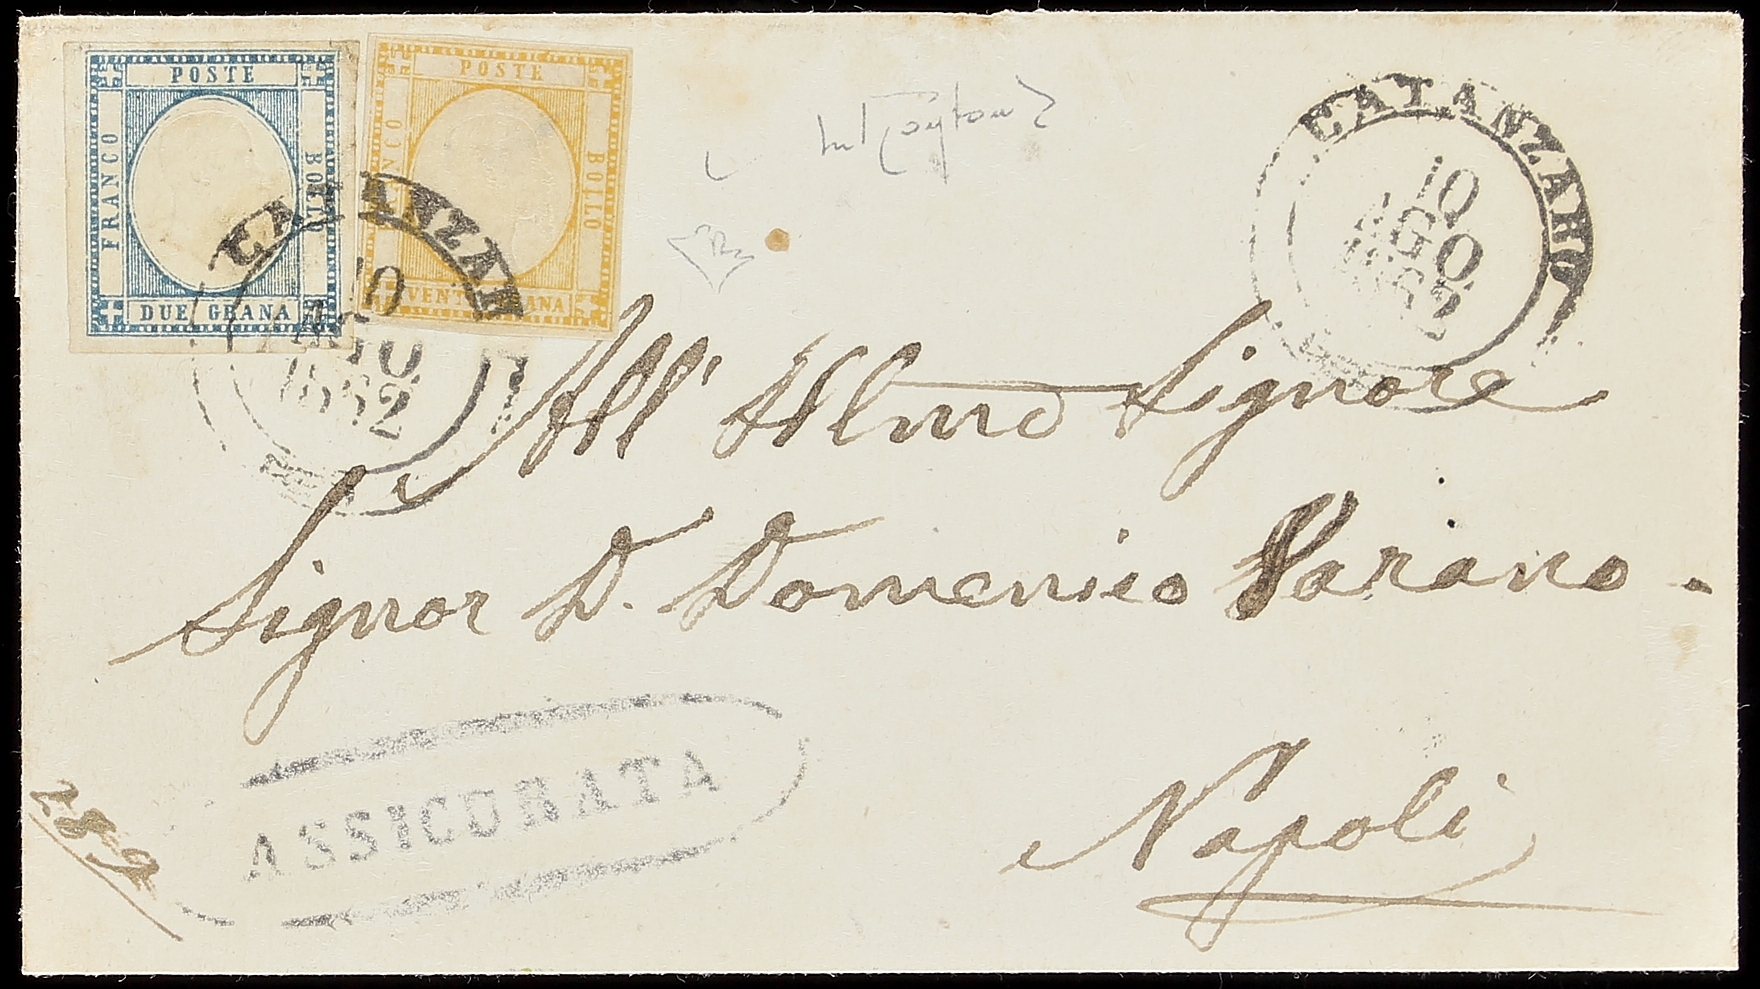 POSTE
FRANCO
BOLLO
DUE GRANA
POSTE
NCO
BOLLO
VENTI GRANA
CATANZAR
10
AGO
1862
CATANZARO
10
AGO
1862
All' Illmo Signore
Signor D. Domenico Varano.
Napoli
ASSICURATA
289